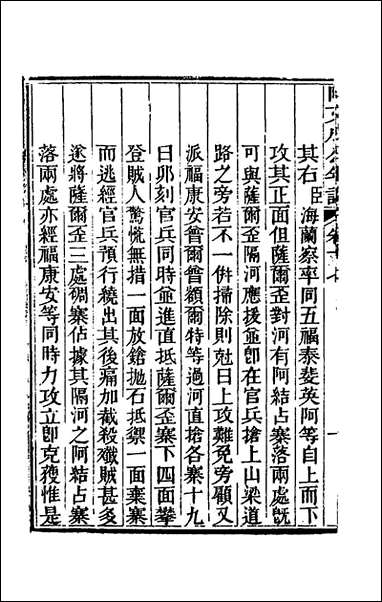 阿文成公年譜
其右臣海蘭察率同五福泰斐英阿等自上而下
攻其正面但薩爾歪對河有阿結占寨落兩處旣
可與薩爾歪隔河應援並卽在官兵搶上山梁道
路之旁若不一併掃除則尅日上攻難免旁顧又
派福康安普爾普額爾特等過河直搶各寨十九
日卯刻官兵同時並進直抵薩爾歪寨下四面攀
登賊人驚慌無措一面放鎗抛石抵禦一面棄寨
而逃經官兵預行繞出其後痛加截殺殲賊甚多
遂將薩爾歪三處碉寨佔據其隔河之阿結占寨
落兩處亦經福康安等同時力攻立卽克獲惟是